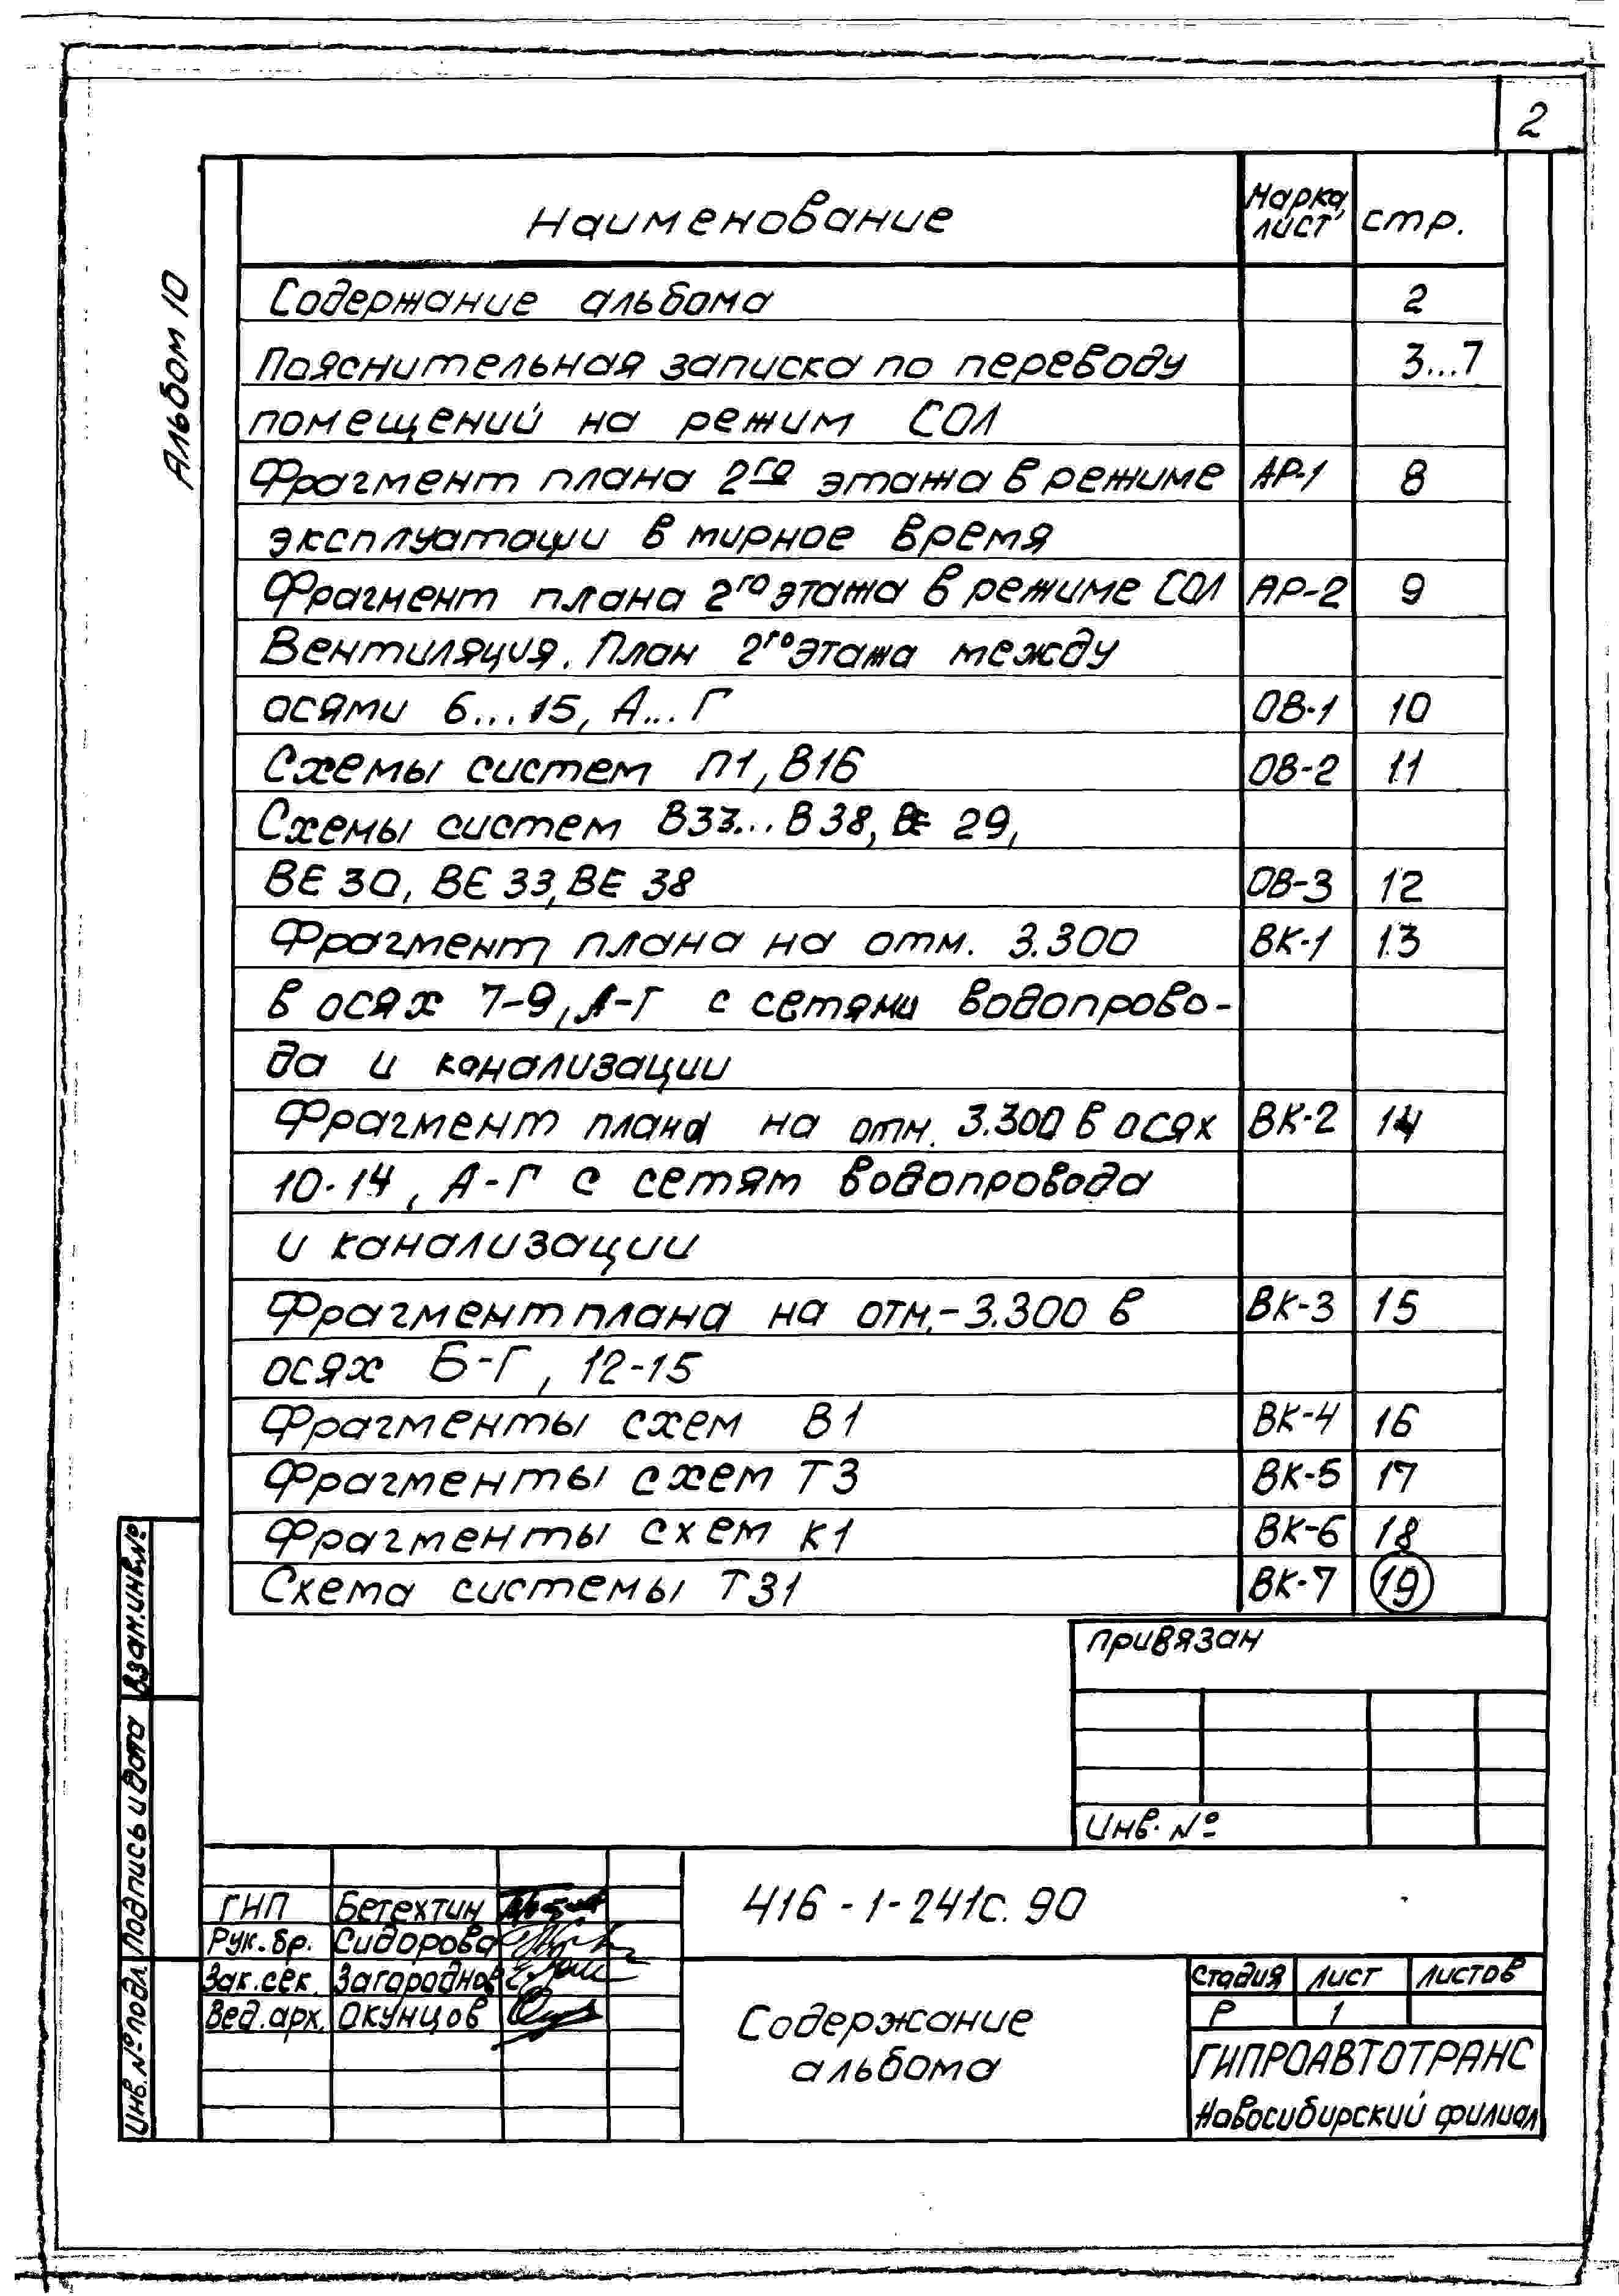 2
Альбом 10
Наименование Марка, лист стр.
Содержание альбома 2
Пояснительная записка по переводу 3...7
помещений на режим СОЛ
Фрагмент плана 2го этажа в режиме АР-1 8
эксплуатации в мирное время
Фрагмент плана 2го этажа в режиме СОЛ АР-2 9
Вентиляция. План 2го этажа между
осями 6...15, А...Г ОВ-1 10
Схемы систем П1, В16 ОВ-2 11
Схемы систем В33...В38, ВЕ 29,
ВЕ 30, ВЕ 33, ВЕ 38 ОВ-3 12
Фрагмент плана на отм. 3.300 ВК-1 13
в осях 7-9, А-Г с сетями водопрово-
да и канализации
Фрагмент плана на отм. 3.300 в осях ВК-2 14
10-14, А-Г с сетям водопровода
и канализации
Фрагмент плана на отм.-3.300 в ВК-3 15
осях Б-Г, 12-15
Фрагменты схем В1 ВК-4 16
Фрагменты схем Т3 ВК-5 17
Фрагменты схем К1 ВК-6 18
Схема системы Т31 ВК-7 19
Привязан
Инв. №
Взам.инв.№
Подпись и дата
Инв.№ подл.
ГНП Бетехтин
Рук. бр. Сидорова
Зак. сек. Загороднов
Вед. арх. Окунцов
416-1-241с.90
Содержание
альбома
Стадия Лист Листов
Р 1
ГИПРОАВТОТРАНС
Новосибирский филиал